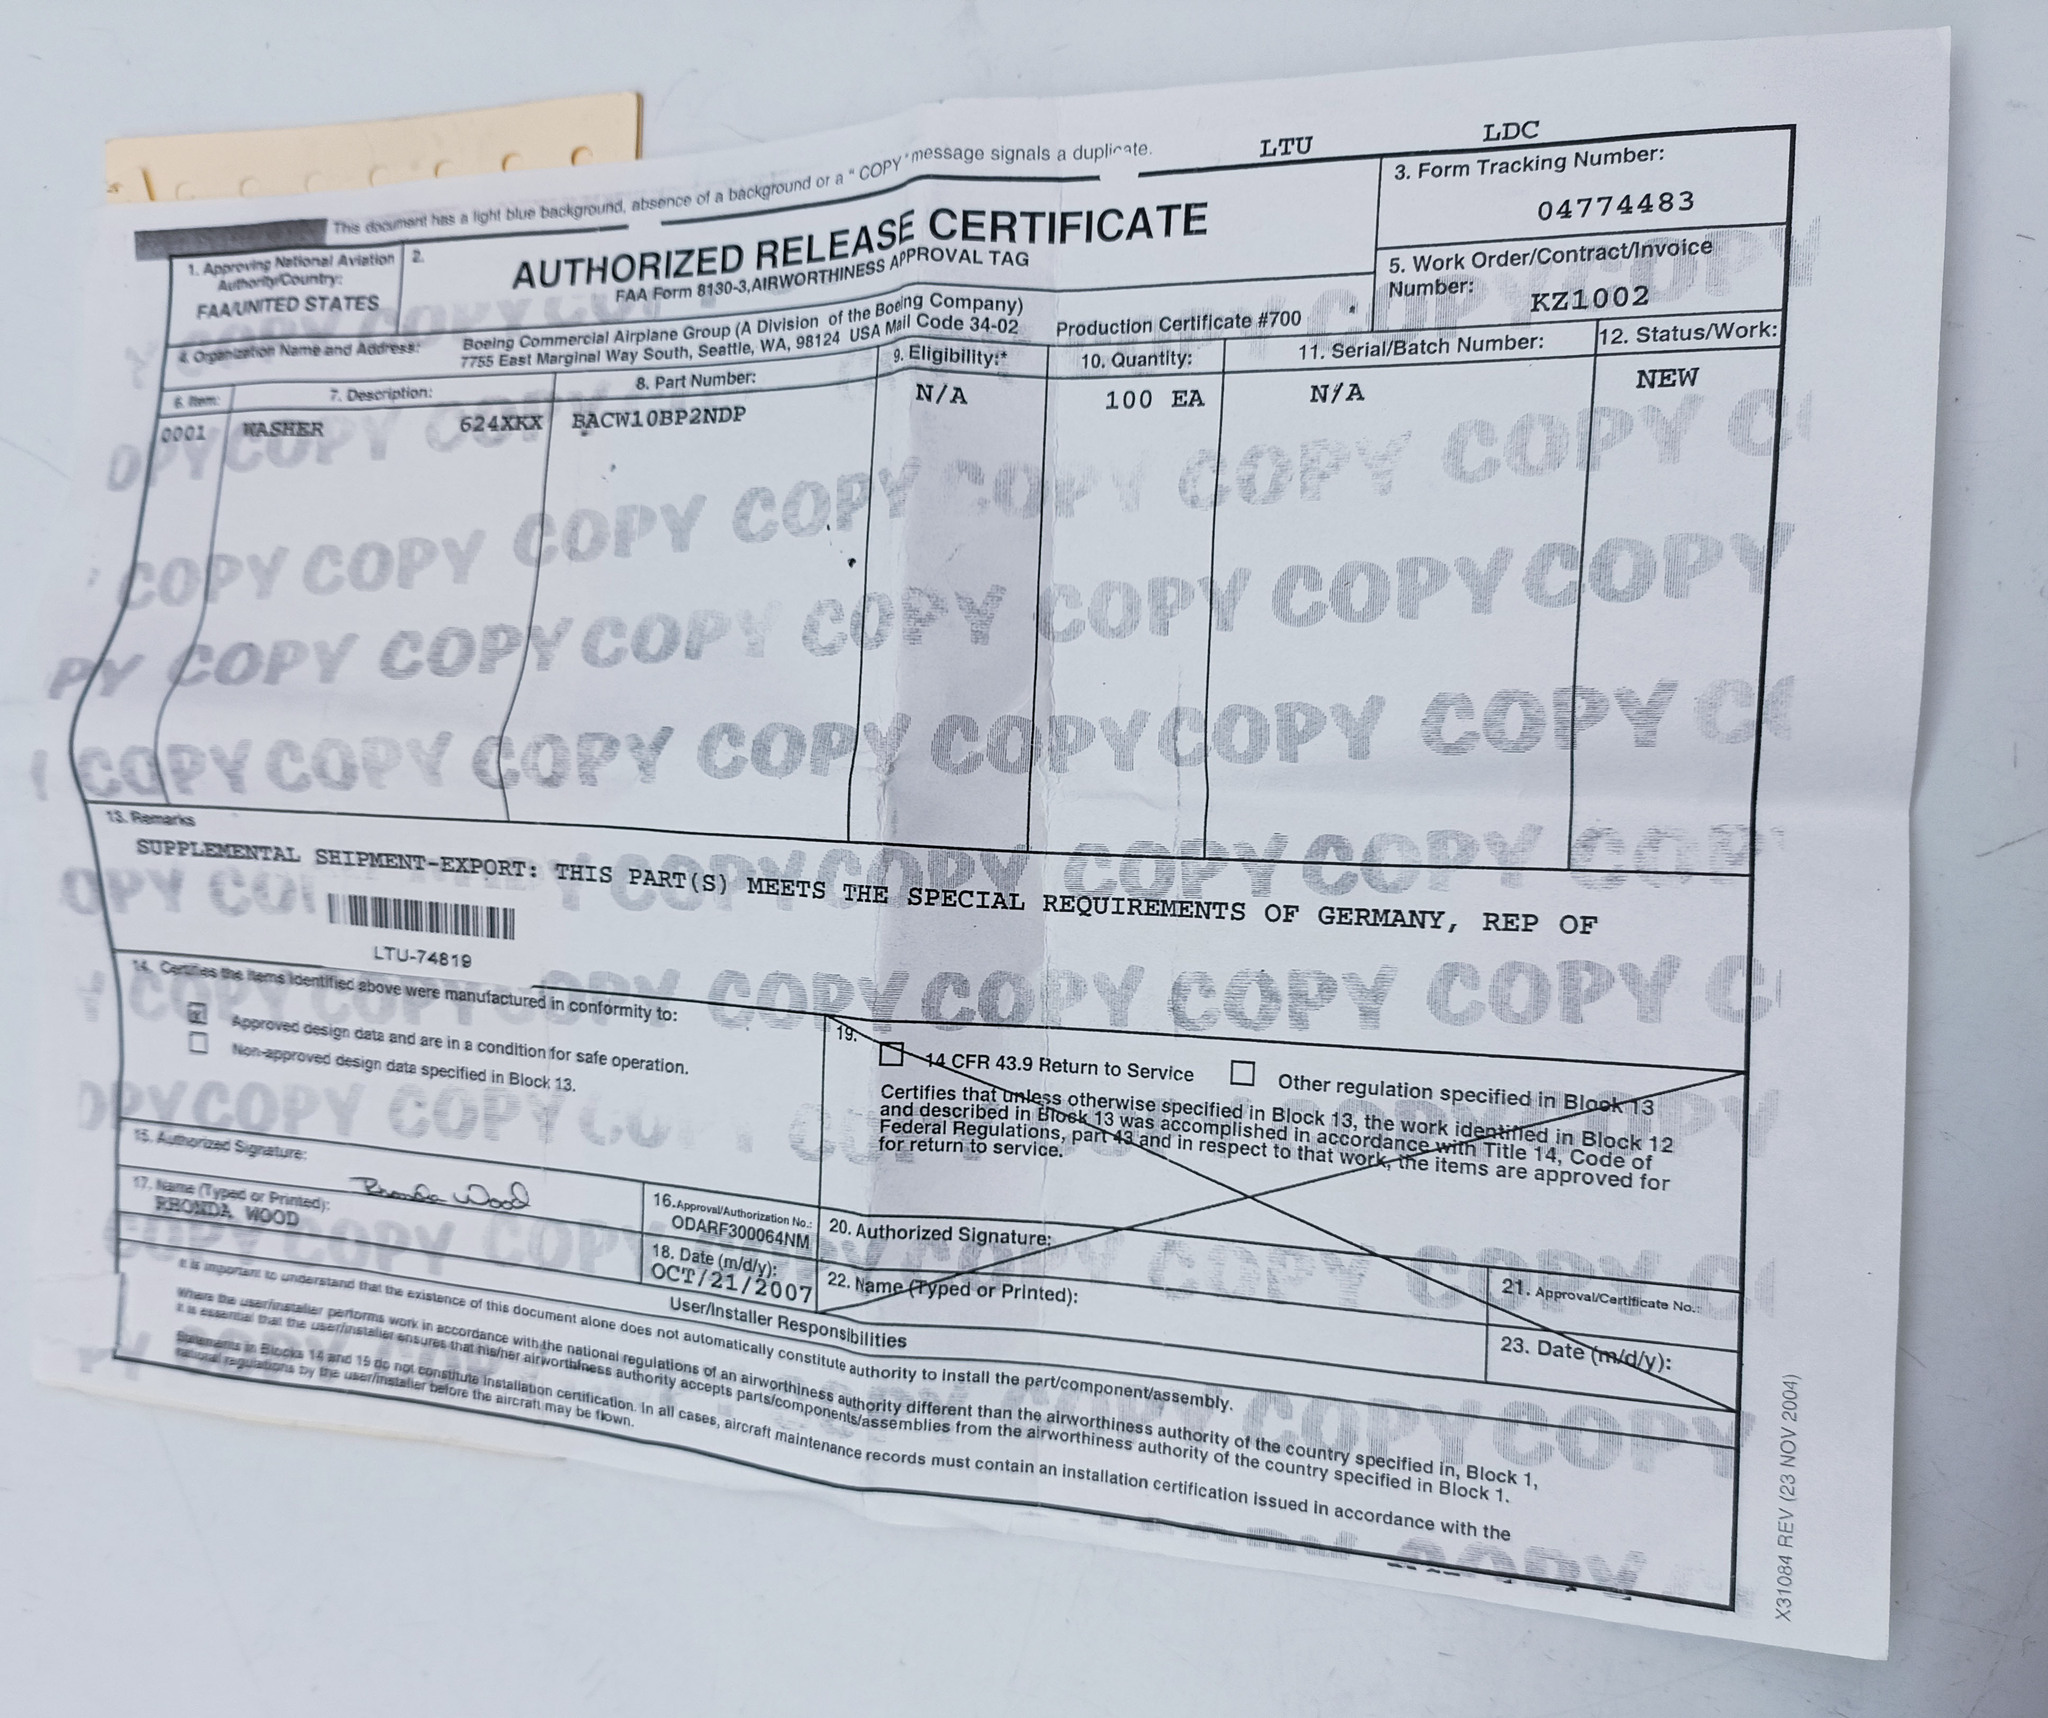 LTU LDC
This document has a light blue background, absence of a background or a "COPY" message signals a duplicate.
1. Approving National Aviation
Authority/Country:
FAA/UNITED STATES
2.
AUTHORIZED RELEASE CERTIFICATE
FAA Form 8130-3, AIRWORTHINESS APPROVAL TAG
3. Form Tracking Number:
04774483
4. Organization Name and Address:
Boeing Commercial Airplane Group (A Division of the Boeing Company)
7755 East Marginal Way South, Seattle, WA, 98124 USA Mail Code 34-02
Production Certificate #700
5. Work Order/Contract/Invoice
Number: KZ1002
6. Item: 7. Description: 8. Part Number: 9. Eligibility:* 10. Quantity: 11. Serial/Batch Number: 12. Status/Work:
0001 WASHER 624XKX BACW10BP2NDP N/A 100 EA N/A NEW
COPY COPY COPY COPY COPY COPY COPY
COPY COPY COPY COPY COPY COPY COPY COPY
COPY COPY COPY COPY COPY COPY COPY COPY
13. Remarks
SUPPLEMENTAL SHIPMENT-EXPORT: THIS PART(S) MEETS THE SPECIAL REQUIREMENTS OF GERMANY, REP OF
LTU-74819
14. Certifies the items identified above were manufactured in conformity to:
Approved design data and are in a condition for safe operation.
Non-approved design data specified in Block 13.
19.
14 CFR 43.9 Return to Service Other regulation specified in Block 13
Certifies that unless otherwise specified in Block 13, the work identified in Block 12
and described in Block 13 was accomplished in accordance with Title 14, Code of
Federal Regulations, part 43 and in respect to that work, the items are approved for
for return to service.
15. Authorized Signature:
Rhonda Wood
16. Approval/Authorization No.:
ODARF300064NM
17. Name (Typed or Printed):
RHONDA WOOD
18. Date (m/d/y):
OCT/21/2007
20. Authorized Signature:
21. Approval/Certificate No.:
22. Name (Typed or Printed):
23. Date (m/d/y):
User/Installer Responsibilities
It is important to understand that the existence of this document alone does not automatically constitute authority to install the part/component/assembly.
Where the user/installer performs work in accordance with the national regulations of an airworthiness authority different than the airworthiness authority of the country specified in, Block 1,
it is essential that the user/installer ensures that his/her airworthiness authority accepts parts/components/assemblies from the airworthiness authority of the country specified in Block 1.
Statements in Blocks 14 and 19 do not constitute installation certification. In all cases, aircraft maintenance records must contain an installation certification issued in accordance with the
national regulations by the user/installer before the aircraft may be flown.
X31084 REV (23 NOV 2004)